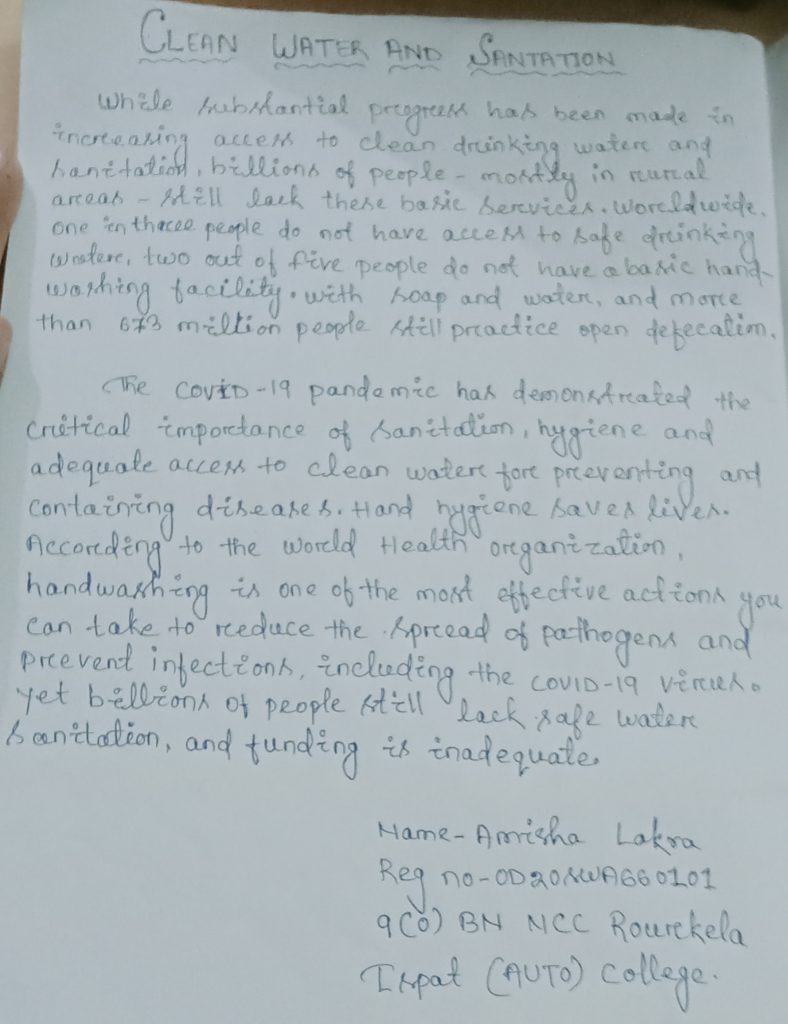 CLEAN WATER AND SANTATION
While substantial progress has been made in
increasing access to clean drinking water and
sanitation, billions of people - mostly in rural
areas - still lack these basic services. worldwide.
one in three people do not have access to safe drinking
water, two out of five people do not have a basic hand-
washing facility. with soap and water, and more
than 673 million people still practice open defecation.
The COVID-19 pandemic has demonstrated the
critical importance of sanitation, hygiene and
adequate access to clean water for preventing and
containing diseases. Hand hygiene saves lives.
According to the world Health organization,
handwashing is one of the most effective actions you
can take to reduce the spread of pathogens and
prevent infections, including the COVID-19 virus.
yet billions of people still lack safe water
sanitation, and funding is inadequate.
Name- Amisha Lakra
Reg no- OD20SWA660101
9(O) BN NCC Rourkela
Ispat (AUTO) college.